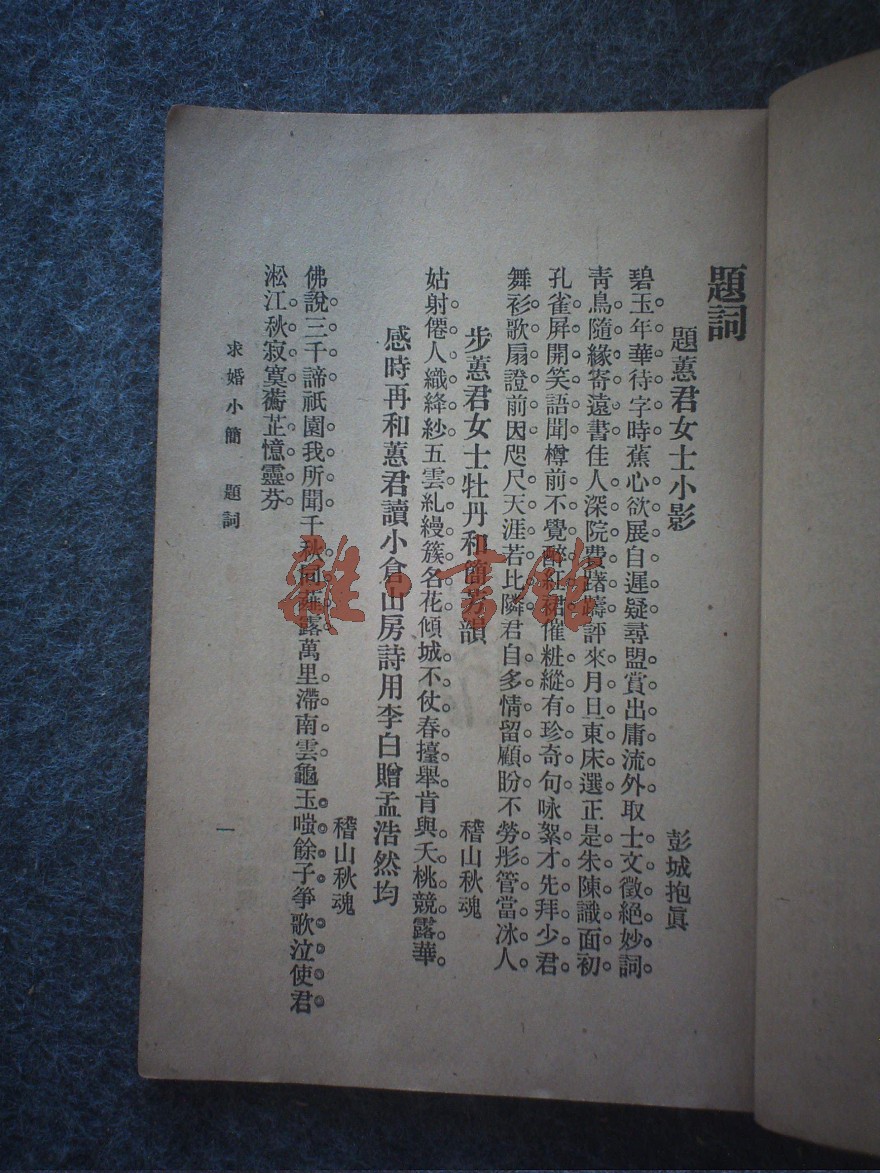 題詞
題蕙君女士小影
彭城抱眞
碧玉年華待字時蕉心欲展自遲疑尋盟賞出庸流外取士文徵絕妙詞
靑鳥隨緣寄遠書佳人深院費躇躊評來月旦東床選正是朱陳識面初
孔雀屛開笑語聞樽前不覺醉紅裙催粧縱有珍奇句咏絮才先拜少君
舞衫歌扇證前因咫尺天涯若比隣君自多情留顧盼不勞彤管當冰人
步蕙君女士牡丹和簡芳韻
稽山秋魂
姑射僊人織絳紗五雲糺縵簇名花傾城不仗春擡舉肯與夭桃競露華
感時再和蕙君讀小倉山房詩用李白贈孟浩然均
稽山秋魂
佛說三千諦祇園我所聞千秋同薤露萬里滯南雲龜玉嗤餘子箏歌泣使君
淞江秋寂寞蘅芷憶靈芬
求婚小簡 題詞
一
雜·書館